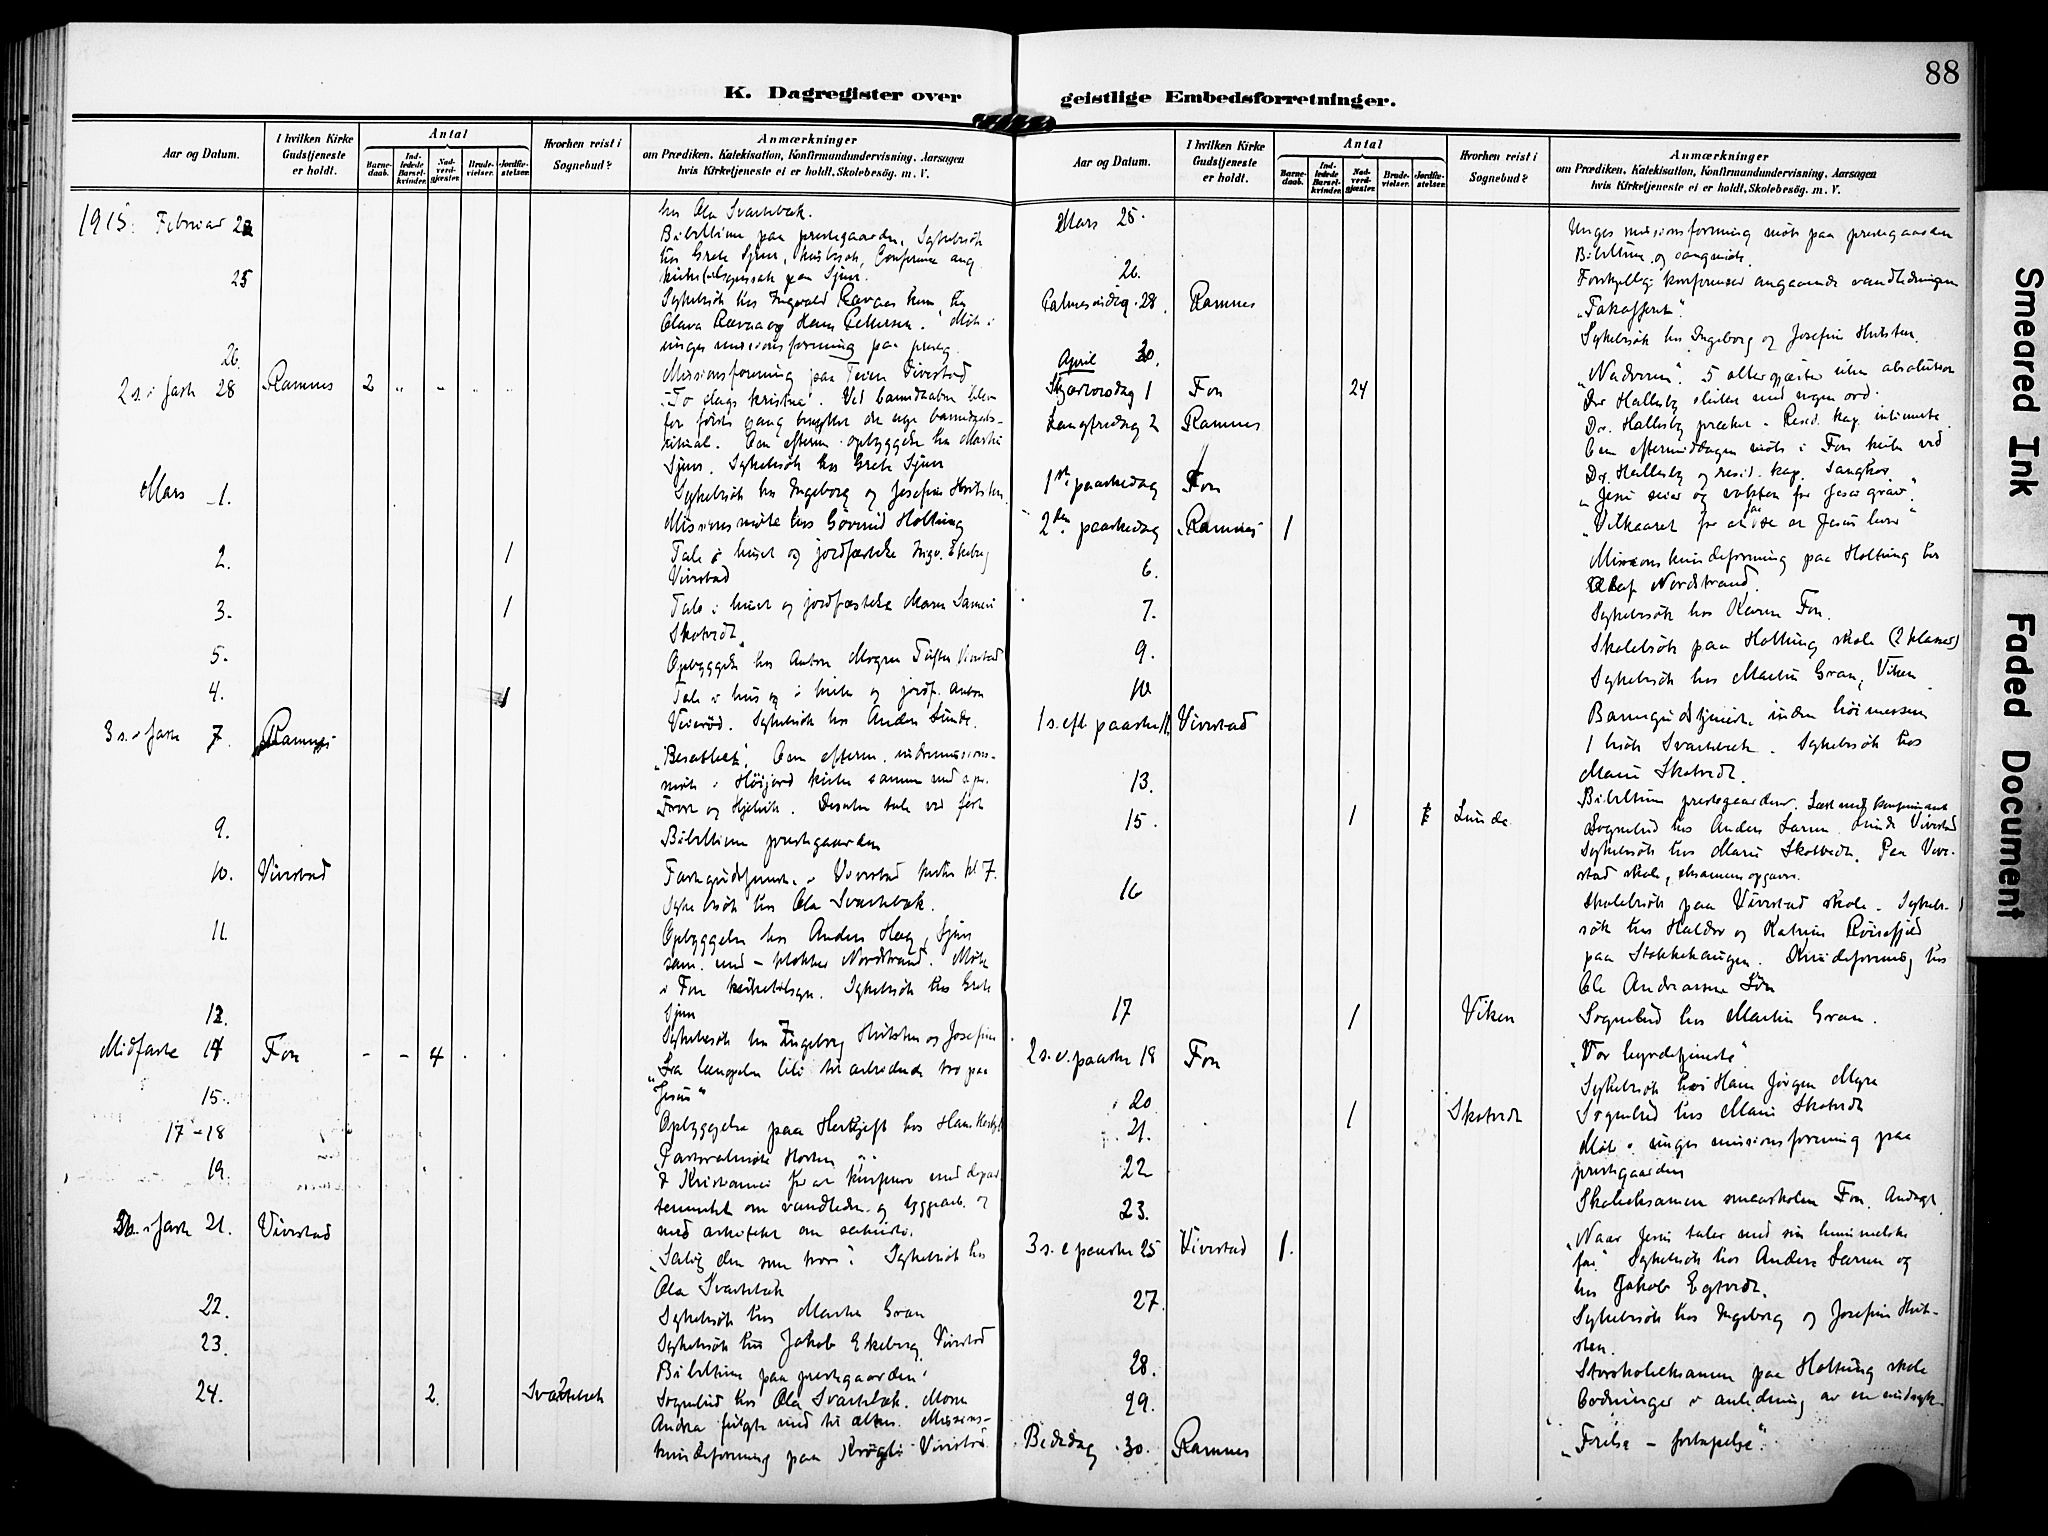 88
K. Dagregister over geistlige Embedsforretninger.
Aar og Datum.
I hvilken Kirke Gudstjeneste er holdt.
Antal
Barne-daab.
Ind-ledede Barsel-kvinder.
Nad-verd-gjæster.
Brude-vielser.
Jordfæ-stelser.
Hvorhen reist i Sognebud?
Anmærkninger
om Prædiken, Katekisation, Konfirmandundervisning, Aarsagen
hvis Kirketjeneste ei er holdt, Skolebesög, m. V.
1915: Februar
hos Ola Svartebæk.
Bibeltime paa prestegaarden. Sykebesök
hos Grete Sjuve, husbesök, Conferanse ang.
25
Sykebesök hos Ingvald Ravaas
Olava Ravaas og Hans Pettersen. Möte i
unges missionsforening paa presteg.
26.
Missionsforening paa Teien Vivestad
2 s. i faste 28 Ramnes 2 " - " "
"To slags kristne". Ved barnedaaben blev
for förste gang benyttet det nye barnedaabs-
ritual. Om efterm. opbyggelse hos
Sjuve. Sykebesök hos Grete Sjuve
Mars 1.
Sykebesök hos Ingeborg og Josefine Hvitsten.
Missionsmöte hos Gövind Holtung
2. 1
Tale i huset og jordfæstelse Ingv. Ekeberg
Vivestad
3. 1
Tale i huset og jordfæstelse Maren
Skotvedt
5.
Opbyggelse hos Anton Mogren Tufte Vivestad
4. 1
Tale i hus og i kirke og jordf. Anton
Sykebesök hos Anders Lunde.
3 s. i faste 7. Ramnes
Om efterm. indremissions-
möte i Höijord kirke sammen med
9.
Bibeltime prestegaarden
10. Vivestad
Fastegudstjeneste i Vivestad kirke kl 7.
Sykebesök hos Ola Svartebæk.
11.
Opbyggelse hos Anders Haug, Sjuve
sam. med klokker Nordstrand. Möte
i Fon kirketilsyn. Sykebesök hos Grete
Sjuve
12.
Sykebesök hos Ingeborg Hvitsten og Josefine
Midfaste 14 Fon - - 4 . .
"Fra til arbeidende tro paa
Jesus"
15.
Opbyggelse paa hos Hans
17-18
Pastoralmöte Horten
19.
Kristiania for at konferere med depar
tementet om vandledn. og byggearb. og
med arkitekt om
s. i faste 21. Vivestad
"Salig den som tror". Sykebesök hos
Ola Svartebæk
22.
Sykebesök hos Martin Gran
23.
Sykebesök hos Jakob Ekeberg, Vivestad
Bibeltime paa prestegaarden.
24. 2. Svartebæk
Sognebud hos Ola Svartebæk. Moren
Andrea fulgte med til alters. Missions-
kvindeforening paa Vivestad
Aar og Datum.
I hvilken Kirke Gudstjeneste er holdt.
Antal
Barne-daab.
Ind-ledede Barsel-kvinder.
Nad-verd-gjæster.
Brude-vielser.
Jordfæ-stelser.
Hvorhen reist i Sognebud?
Anmærkninger
om Prædiken, Katekisation, Konfirmandundervisning, Aarsagen
hvis Kirketjeneste ei er holdt, Skolebesög, m. V.
Mars 25.
Unges missionsforening möte paa prestegaarden
Bibeltime og sangmöte.
26.
Forskjellige konferanser angaaende vandledningen
Palmesöndag 28. Ramnes
"Takofferet".
30.
Sykebesök hos Ingeborg og Josefine Hvitsten.
April
Skjærtorsdag 1 Fon 24
"Nadveren". 5 altergjæster uten absolution
Dr. Hallesby sluttet med nogen ord.
Langfredag 2 Ramnes
Dr. Hallesby præket. Resid. kap. intimerte.
Om eftermiddagen möte i Fon kirke ved
Dr. Hallesby og resid. kap. Sangkor
1ste paaskedag Fon
"Jesu seier og vakten for Jesu grav".
2den paaskedag Ramnes 1
"Vilkaaret for at se at Jesus lever"
6.
Missionskvindeforening paa Holtung hos
Olaf Nordstrand.
7.
Sykebesök hos Karen Fon.
9.
Skolebesök paa Holtung skole (2 klasser)
10.
Sykebesök hos Martin Gran, Viken
1 s. eft. paaske 11. Vivestad
Barnegudstjeneste under höimessen
1 besök Svartebæk. Sykebesök hos
Marie Skotvedt.
13.
Bibeltime prestegaarden.
15. 1 Lunde
Sognebud hos Anders Larsen Lunde Vivestad
Sykebesök hos Marie Skotvedt. Paa Vive-
stad skole, eksamensopgaver.
16
Skolebesök paa Vivestad skole. Sykebe-
sök hos Haldor og Katrine
paa Stokkehaugen. Kvindeforening hos
Ole Andreassen
17 1 Viken
Sognebud hos Martin Gran.
2 s. e. paaske 18 Fon
"Vor hyrdetjeneste"
20
Sykebesök hos Hans Jörgen Myre
21. 1 Skotvedt
Sognebud hos Marie Skotvedt
22
Möte i unges missionsforening paa
prestegaarden
23.
Skoleeksamen smaaskolen Fon. Andagt.
3 s. e paaske 25 Vivestad 1.
"Naar Jesus taler med sin himmelske
far". Sykebesök hos Anders Larsen og
hos Jakob
27.
Sykebesök hos Ingeborg og Josefine Hvit-
sten.
28.
Storskoleeksamen paa Holtung skole
29.
i anledning av en
Bededag 30. Ramnes
"Frelse - fortapelse".
Smeared Ink
Faded Document